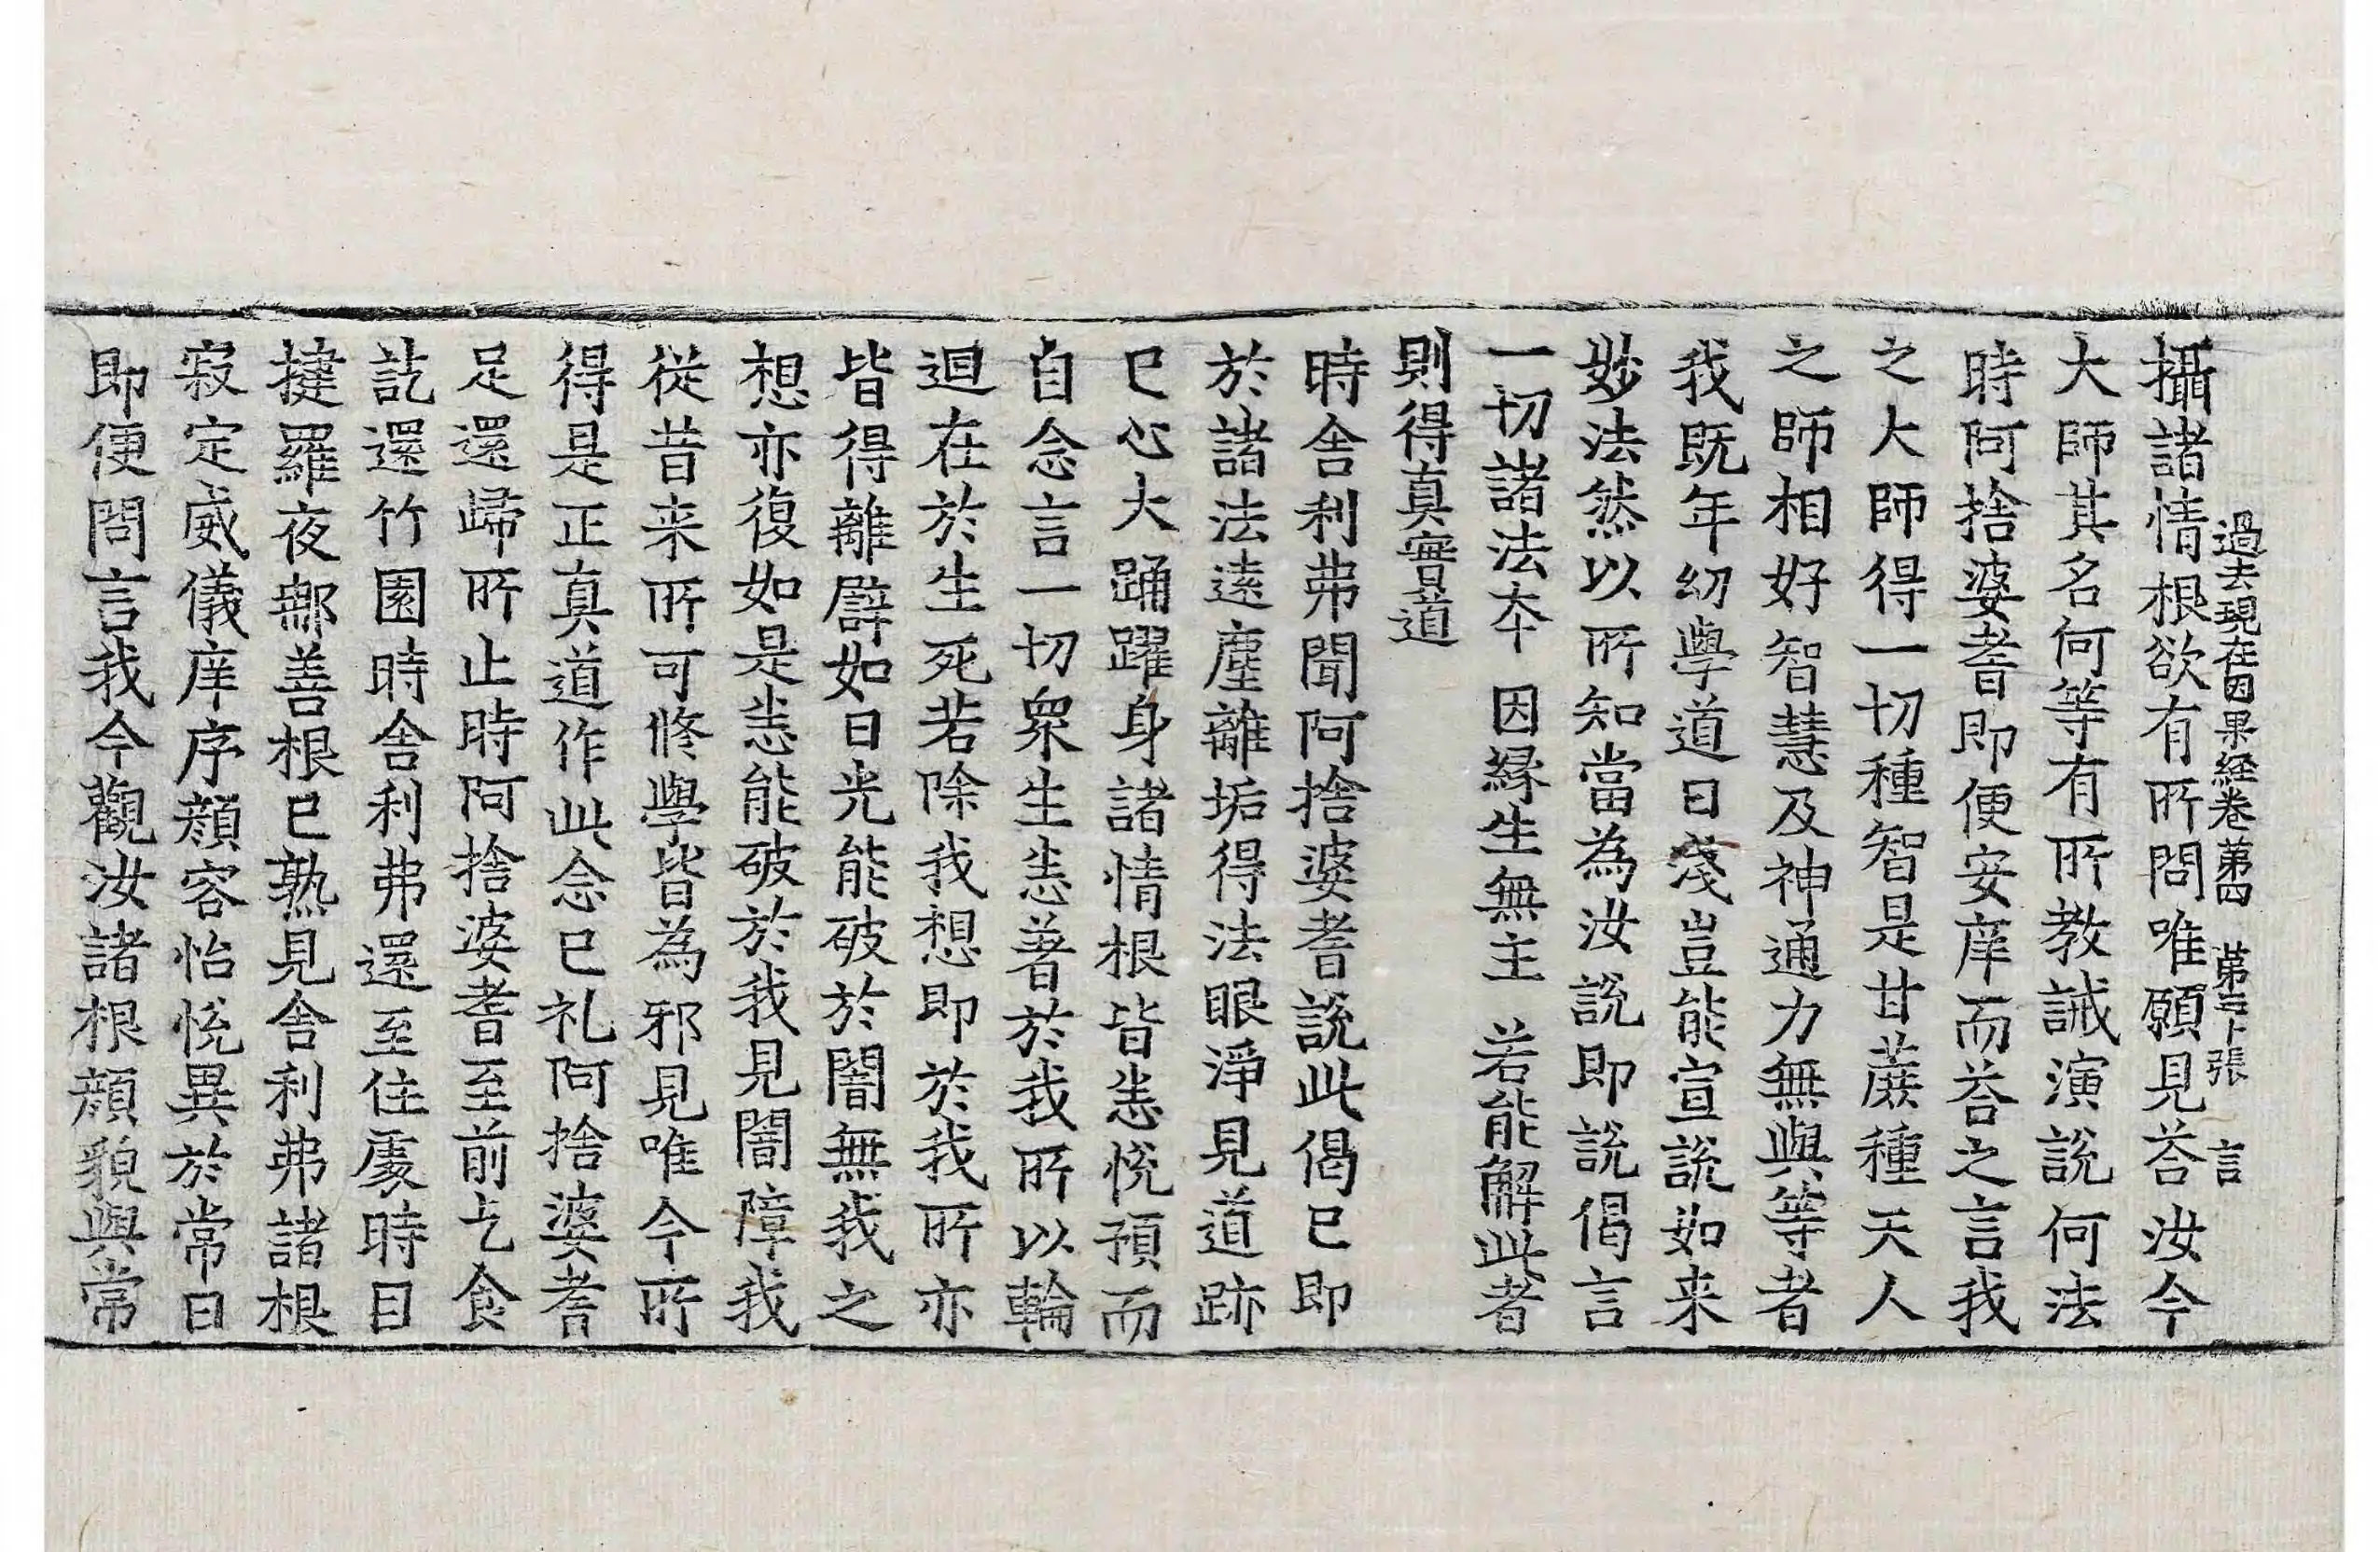 過去現在因果経卷苐四 苐二十張 言
攝諸情根欲有所問唯願見荅汝今
大師其名何等有所教誡演說何法
時阿捨婆耆即便安庠而荅之言我
之大師得一切種智是甘蔗種天人
之師相好智慧及神通力無與等者
我既年幼學道日淺豈能宣說如来
妙法然以所知當為汝說即說偈言
一切諸法夲 因縁生無主 若能解此者
則得真實道
時舎利弗聞阿捨婆耆說此偈已即
於諸法遠塵離垢得法眼淨見道跡
已心大踊躍身諸情根皆悉悅預而
自念言一切衆生悉著於我所以輪
迴在於生死若除我想即於我所亦
皆得離譬如日光能破於闇無我之
想亦復如是悉能破於我見闇障我
從昔来所可修學皆為邪見唯今所
得是正真道作此念已礼阿捨婆耆
足還歸所止時阿捨婆耆至前乞食
訖還竹園時舎利弗還至住處時目
揵羅夜那善根已熟見舎利弗諸根
寂定威儀庠序顏容怡悅異於常日
即便問言我今觀汝諸根顏貌與常